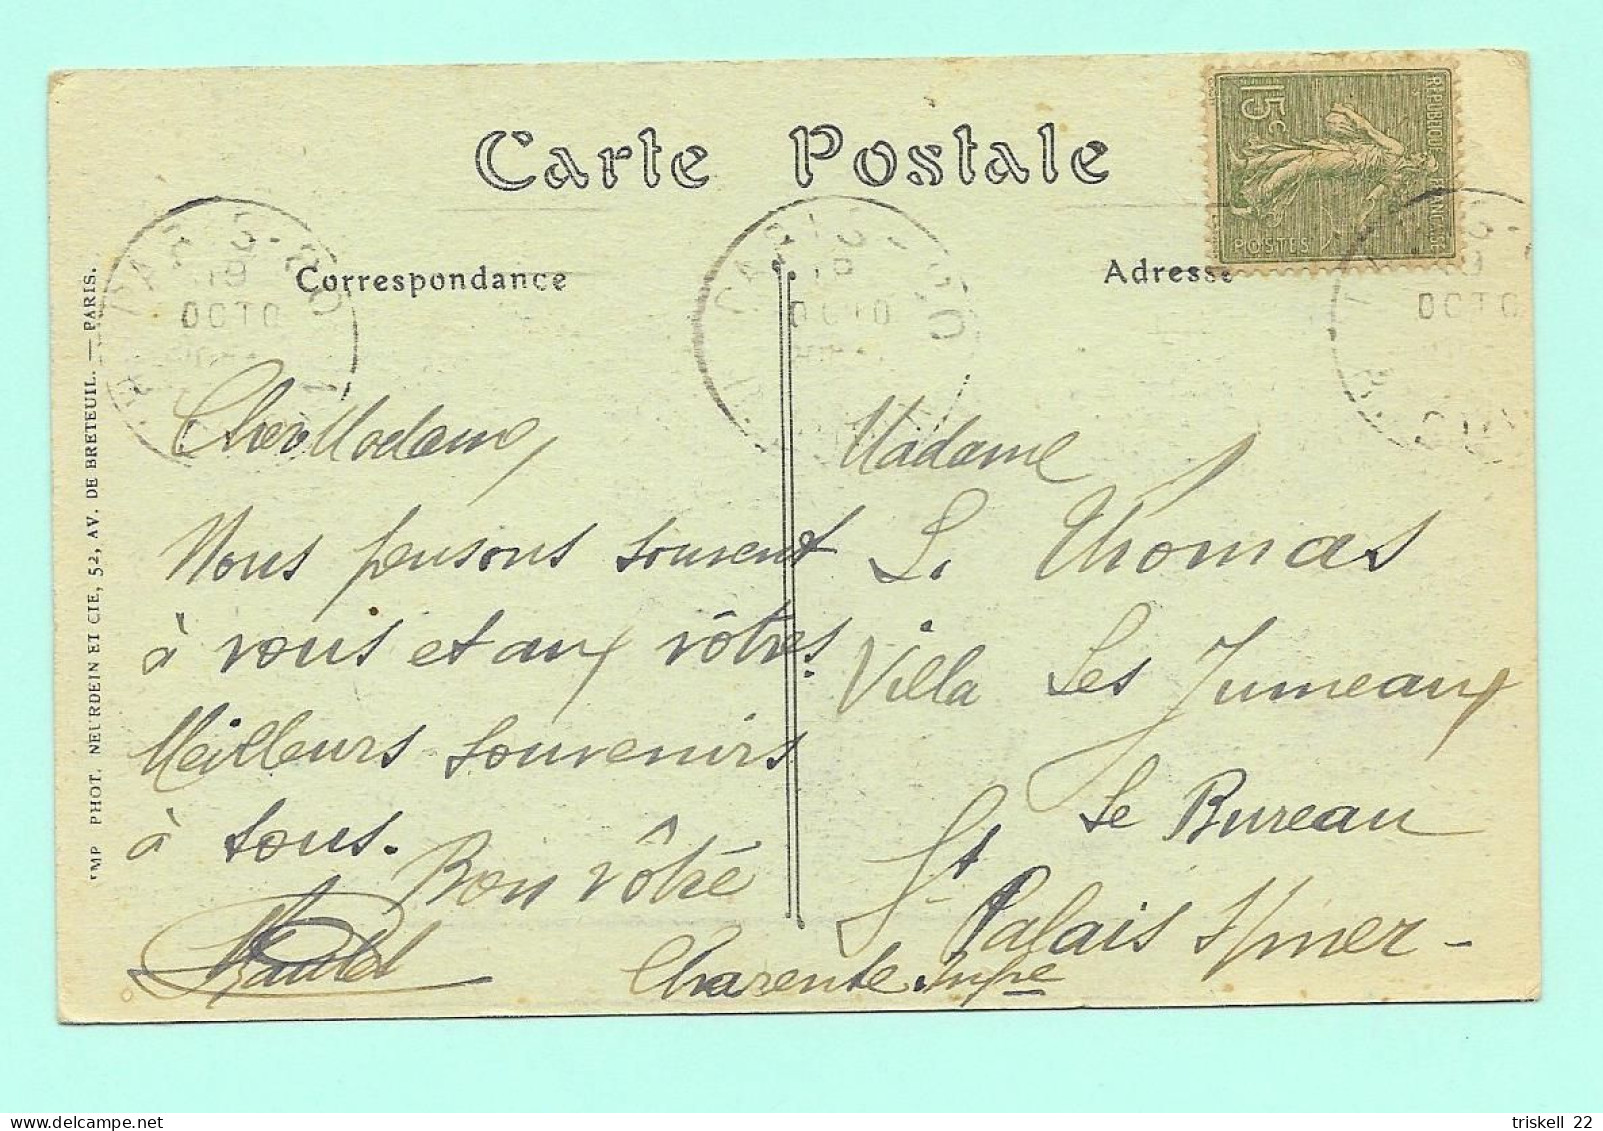 Carte Postale
Correspondance
Adresse
15c
RÉPUBLIQUE FRANÇAISE
POSTES
OCTO
OCTO
OCTO
IMP. PHOT. NEURDEIN ET CIE, 52, AV. DE BRETEUIL. — PARIS.
Chère Madame,
Nous pensons souvent
à vous et aux vôtres.
Meilleurs souvenirs
à tous.
Bon vôtre
Madame
L. Thomas
Villa Les Jumeaux
Le Bureau
St Palais s/mer -
Charente Infre
triskell 22